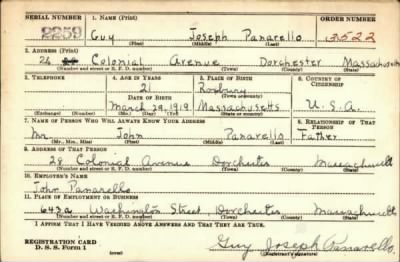 SERIAL NUMBER 1. NAME (Print) ORDER NUMBER
2259 Guy Joseph Panarello 13522
(First) (Middle) (Last)
2. ADDRESS (Print)
26 Colonial Avenue Dorchester Massachusetts
(Number and street or R. F. D. number) (Town) (County) (State)
3. TELEPHONE 4. AGE IN YEARS 5. PLACE OF BIRTH 6. COUNTRY OF CITIZENSHIP
21 Roxbury
DATE OF BIRTH (Town or county)
March 29, 1919 Massachusetts U.S.A.
(Exchange) (No.) (Mo.) (Day) (Yr.) (State or country)
7. NAME OF PERSON WHO WILL ALWAYS KNOW YOUR ADDRESS 8. RELATIONSHIP OF THAT PERSON
Mr. John Panarello Father
(Mr., Mrs., Miss) (First) (Middle) (Last)
9. ADDRESS OF THAT PERSON
28 Colonial Avenue Dorchester Massachusetts
(Number and street or R. F. D. number) (Town) (County) (State)
10. EMPLOYER'S NAME
John Panarello
11. PLACE OF EMPLOYMENT OR BUSINESS
643a Washington Street, Dorchester Massachusetts
(Number and street or R. F. D. number) (Town) (County) (State)
I AFFIRM THAT I HAVE VERIFIED ABOVE ANSWERS AND THAT THEY ARE TRUE.
REGISTRATION CARD
D. S. S. Form 1 (over) Guy Joseph Panarello
(Registrant's signature)